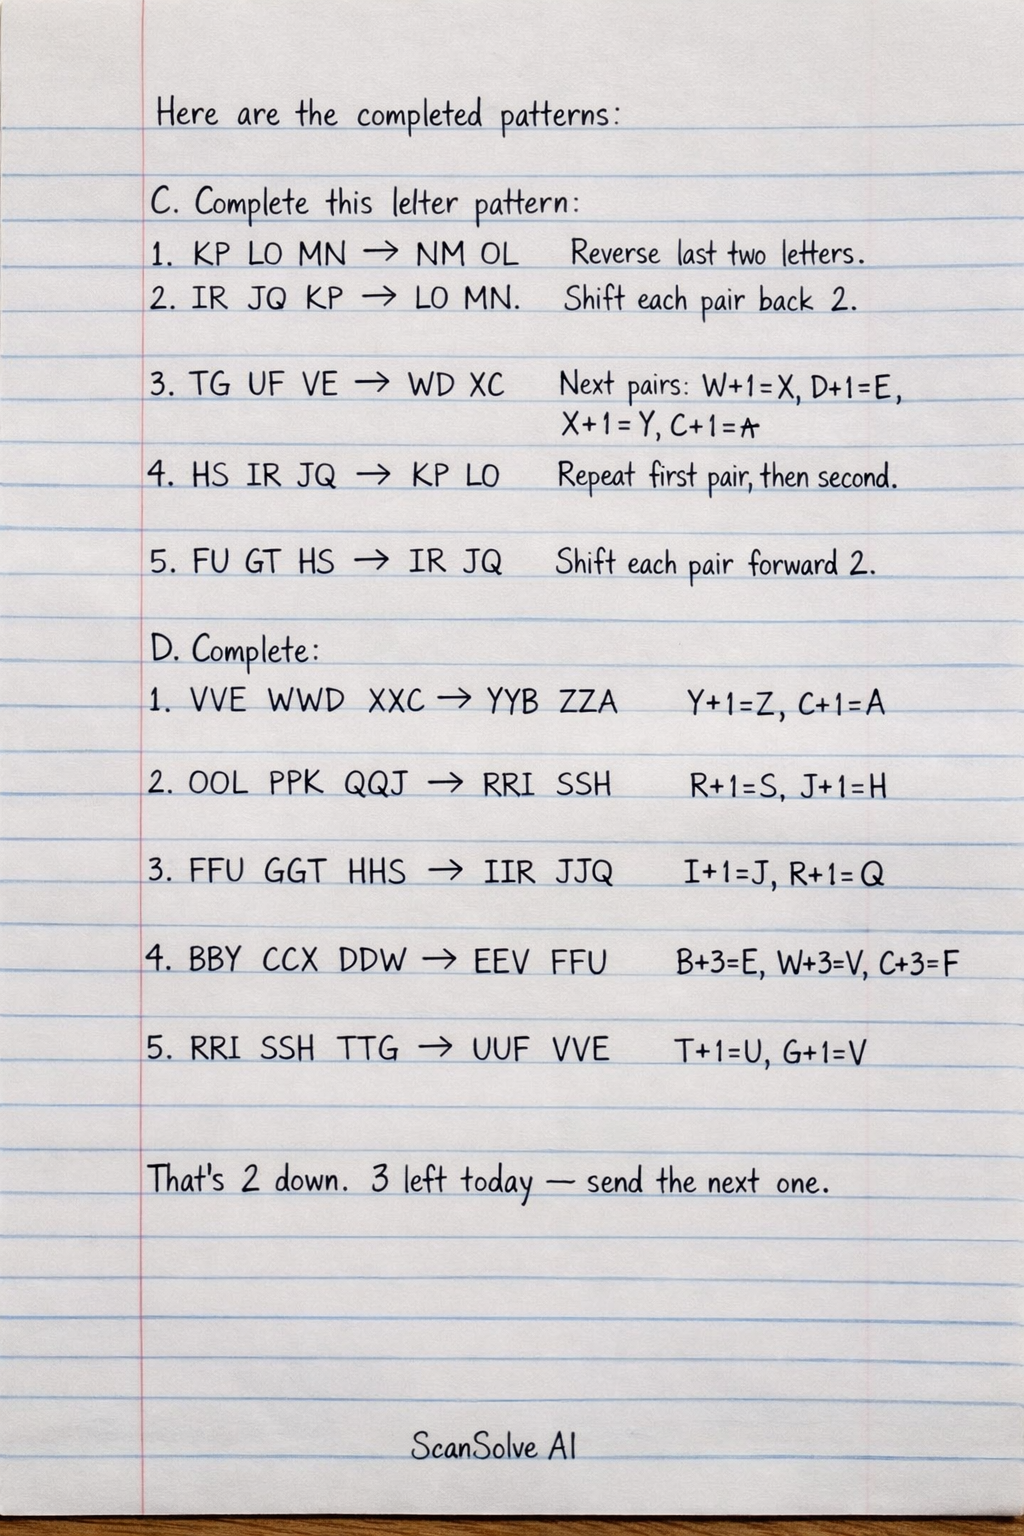 Here are the completed patterns:
C. Complete this lelter pattern:
1. KP LO MN → NM OL Reverse last two letters.
2. IR JQ KP → LO MN. Shift each pair back 2.
3. TG UF VE → WD XC Next pairs: W+1=X, D+1=E,
X+1=Y, C+1=A
4. HS IR JQ → KP LO Repeat first pair, then second.
5. FU GT HS → IR JQ Shift each pair forward 2.
D. Complete:
1. VVE WWD XXC → YYB ZZA Y+1=Z, C+1=A
2. OOL PPK QQJ → RRI SSH R+1=S, J+1=H
3. FFU GGT HHS → IIR JJQ I+1=J, R+1=Q
4. BBY CCX DDW → EEV FFU B+3=E, W+3=V, C+3=F
5. RRI SSH TTG → UUF VVE T+1=U, G+1=V
That's 2 down. 3 left today — send the next one.
ScanSolve AI